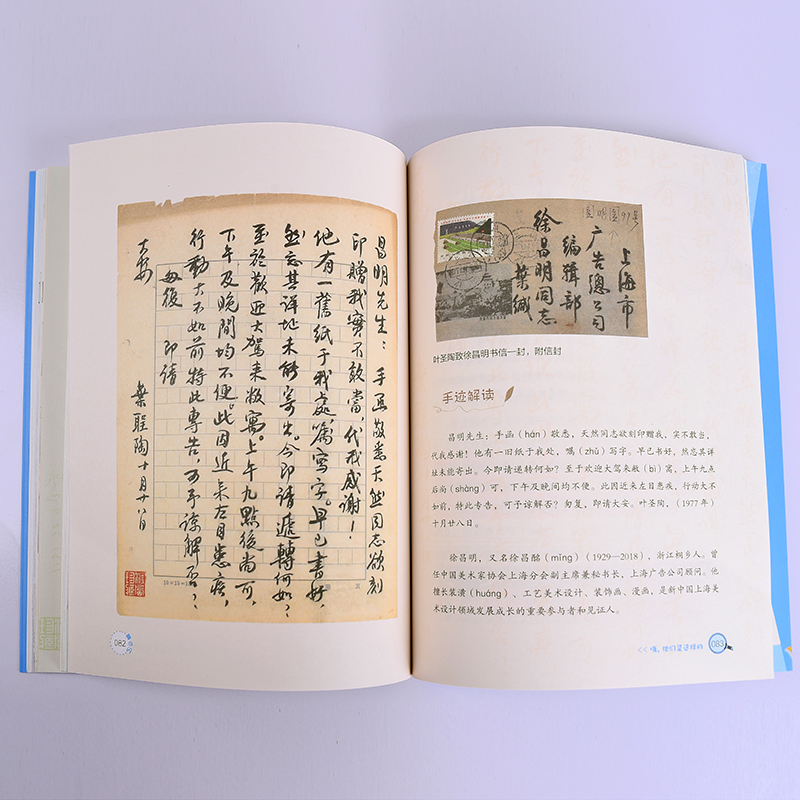 昌明先生：手函敬悉天然同志欲刻
印贈我實不敢當，代我感謝！
他有一舊紙于我處，囑寫字。早已書好，
然忘其詳址未能寄出。今即請遞轉何如？
至於歡迎大駕來敝寓。上午九點後尚可，
下午及晚間均不便。此因近來左目患疾，
行動大不如前特此專告，可予諒解否？
匆復 即請
大安
葉聖陶 十月廿八日
082
上海市
广告總公司
編辑部
徐昌明同志
葉缄
叶圣陶致徐昌明书信一封，附信封
手迹解读
昌明先生：手函（hán）敬悉，天然同志欲刻印赠我，实不敢当，
代我感谢！他有一旧纸于我处，嘱（zhǔ）写字。早已书好，然忘其详
址未能寄出。今即请递转何如？至于欢迎大驾来敝（bì）寓，上午九点
后尚（shàng）可，下午及晚间均不便。此因近来左目患疾，行动大不
如前，特此专告，可予谅解否？匆复，即请大安。叶圣陶，（1977年）
十月廿八日。
徐昌明，又名徐昌酩（mǐng）（1929—2018），浙江桐乡人。曾
任中国美术家协会上海分会副主席兼秘书长，上海广告公司顾问。他
擅长装潢（huáng）、工艺美术设计、装饰画、漫画，是新中国上海美
术设计领域发展成长的重要参与者和见证人。
嗨，他们是这样的
083